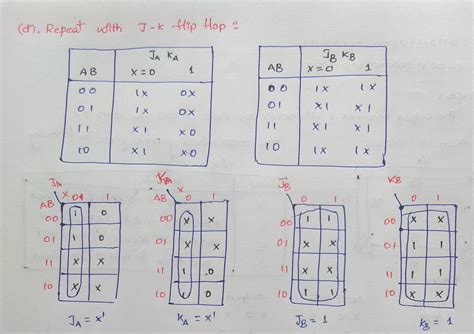 (d). Repeat with J-K flip Flop :
J_A K_A
AB x=0 1
00 1x 0x
01 1x 0x
11 x1 x0
10 x1 x0
J_B K_B
AB x=0 1
00 1x 1x
01 x1 x1
11 x1 x1
10 1x 1x
J_A
x
AB 0 1
00 1 0
01 1 0
11 x x
10 x x
J_A = x'
K_A
x
AB 0 1
00 x x
01 x x
11 1 0
10 1 0
K_A = x'
J_B
0 1
00 1 1
01 x x
11 x x
10 1 1
J_B = 1
K_B
0 1
00 x x
01 1 1
11 1 1
10 x x
K_B = 1